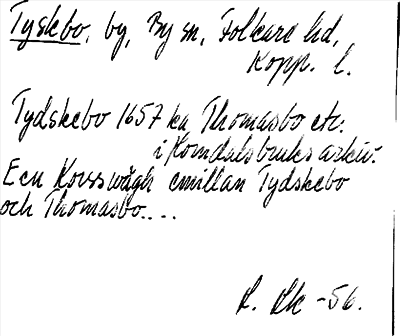 Tyskebo, by, By sn, Folkare hd,
Kopp. l.
Tydskebo 1657 ka Thomasbo etc.
i Korndals bruks arkiv.
Een Korsswägh emillan Tydskebo
och Thomasbo....
R. Lk -56.